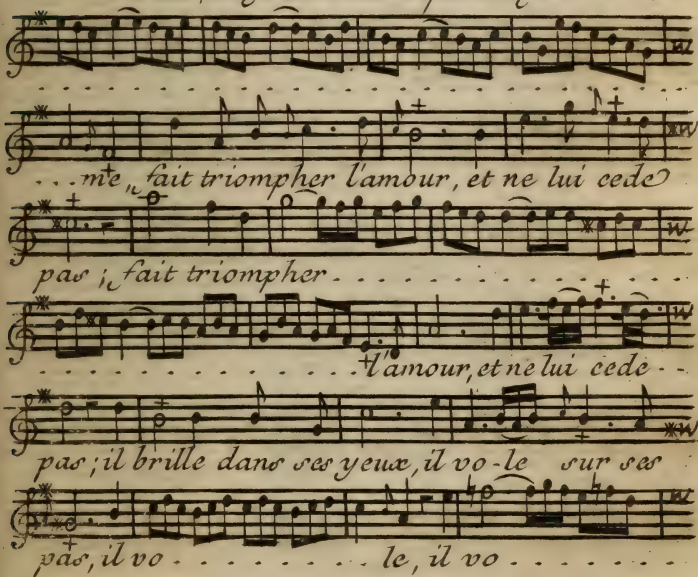 ...me, fait triompher l'amour, et ne lui cede
pas; fait triompher . . . . . . . . . . . . . . . . . .
. . . . . . . . . . . . . . l'amour, et ne lui cede - -
pas; il brille dans ses yeux, il vo-le sur ses
pas, il vo . . . . . . . . . . le, il vo . . . . . . .